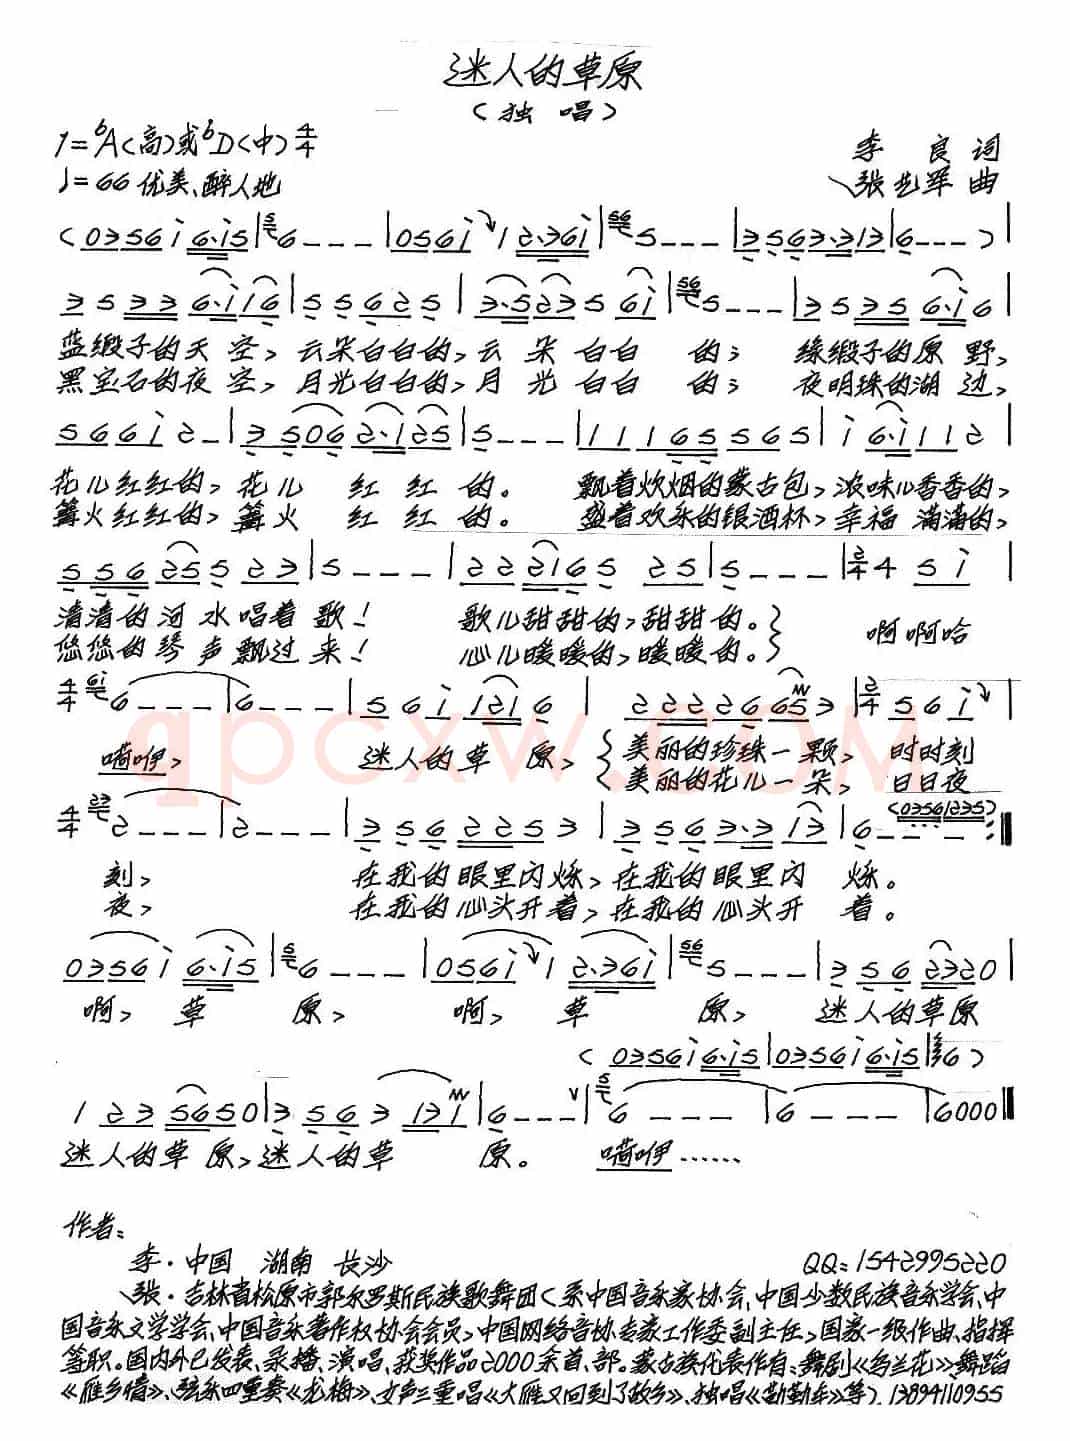 迷人的草原
（独 唱）
1=♭A（高）或♭D（中）4/4
♩=66 优美、醉人地
李 良 词
张艺军 曲
蓝缎子的天 空，云朵白白的，云 朵 白白 的； 绿缎子的原 野，
黑宝石的夜 空，月光白白的，月 光 白白 的； 夜明珠的湖 边，
花儿红红的，花儿 红 红 的。 飘着炊烟的蒙古包，浓味儿香香的，
篝火红红的，篝火 红 红 的。 盛着欢乐的银酒杯，幸福 满满的，
清清的河 水唱着 歌！ 歌儿甜甜的，甜甜的。 啊啊哈
悠悠的琴 声飘过 来！ 心儿暖暖的，暖暖的。
嗬咿， 迷人的草 原，美丽的珍珠一 颗， 时时刻
美丽的花儿一 朵， 日日夜
刻， 在我的眼里闪 烁，在我的眼里闪 烁。
夜， 在我的心头开 着，在我的心头开 着。
啊， 草 原， 啊， 草 原， 迷人的草原
迷人的草 原，迷人的草 原。 嗬咿……
作者：
李·中国 湖南 长沙 QQ：1542995220
张·吉林省松原市郭尔罗斯民族歌舞团（系中国音乐家协会、中国少数民族音乐学会、中
国音乐文学学会、中国音乐著作权协会会员，中国网络音协专家工作委副主任，国家一级作曲、指挥
等职。国内外已发表、录播、演唱、获奖作品2000余首、部。蒙古族代表作有：舞剧《乌兰花》舞蹈
《雁乡情》、弦乐四重奏《龙梅》、女声二重唱《大雁又回到了故乡》、独唱《勒勒车》等）13894110955
qpcxw.COM